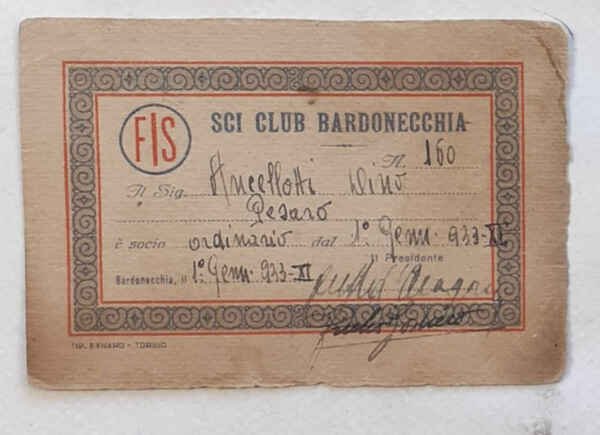 FIS
SCI CLUB BARDONECCHIA
N. 160
Il Sig. Ancellotti Dino
Pesaro
è socio ordinario dal 1° Genn. 933-XI
Il Presidente
Bardonecchia, li 1° Genn. 933-XI
TIP. EYNARD - TORINO